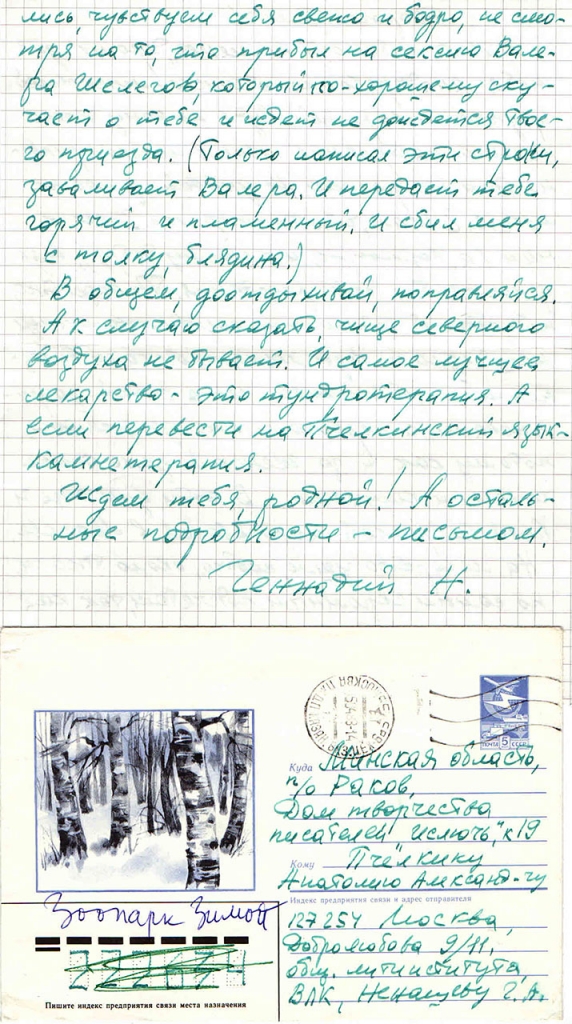 лись, чувствуем себя свежо и бодро, не смо-
тря на то, что прибыл на сексию Вале-
ра Шелегов, который по-хорошему ску-
чает о тебе и ждет не дождется твое-
го приезда. (Только написал эти строки,
заваливает Валера. И передает тебе
горячий и пламенный. И сбил меня
с толку, блядина.)
В общем, доотдыхивай, поправляйся.
А к случаю сказать, чище северного
воздуха не бывает. И самое лучшее
лекарство - это тундротерапия. А
если перевести на Пчелкинский язык -
камнетерапия.
Ждем тебя, родной! А осталь-
ные подробности - письмом.
Геннадий Н.
ПОЧТА 5 СССР
Куда Минская область,
п/о Раков,
Дом творчества
писателей "Ислочь", к 19
Кому Пчёлкину
Анатолию Александ-чу
Индекс предприятия связи и адрес отправителя
127254 Москва,
Добролюбова 9/11,
общ. литинститута,
ВЛК, Ненашеву Г. А.
Зоопарк Зимой
Пишите индекс предприятия связи места назначения